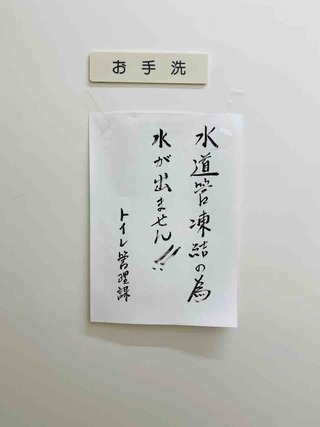 お手洗
水道管凍結の為
水が出ません!!
トイレ管理課